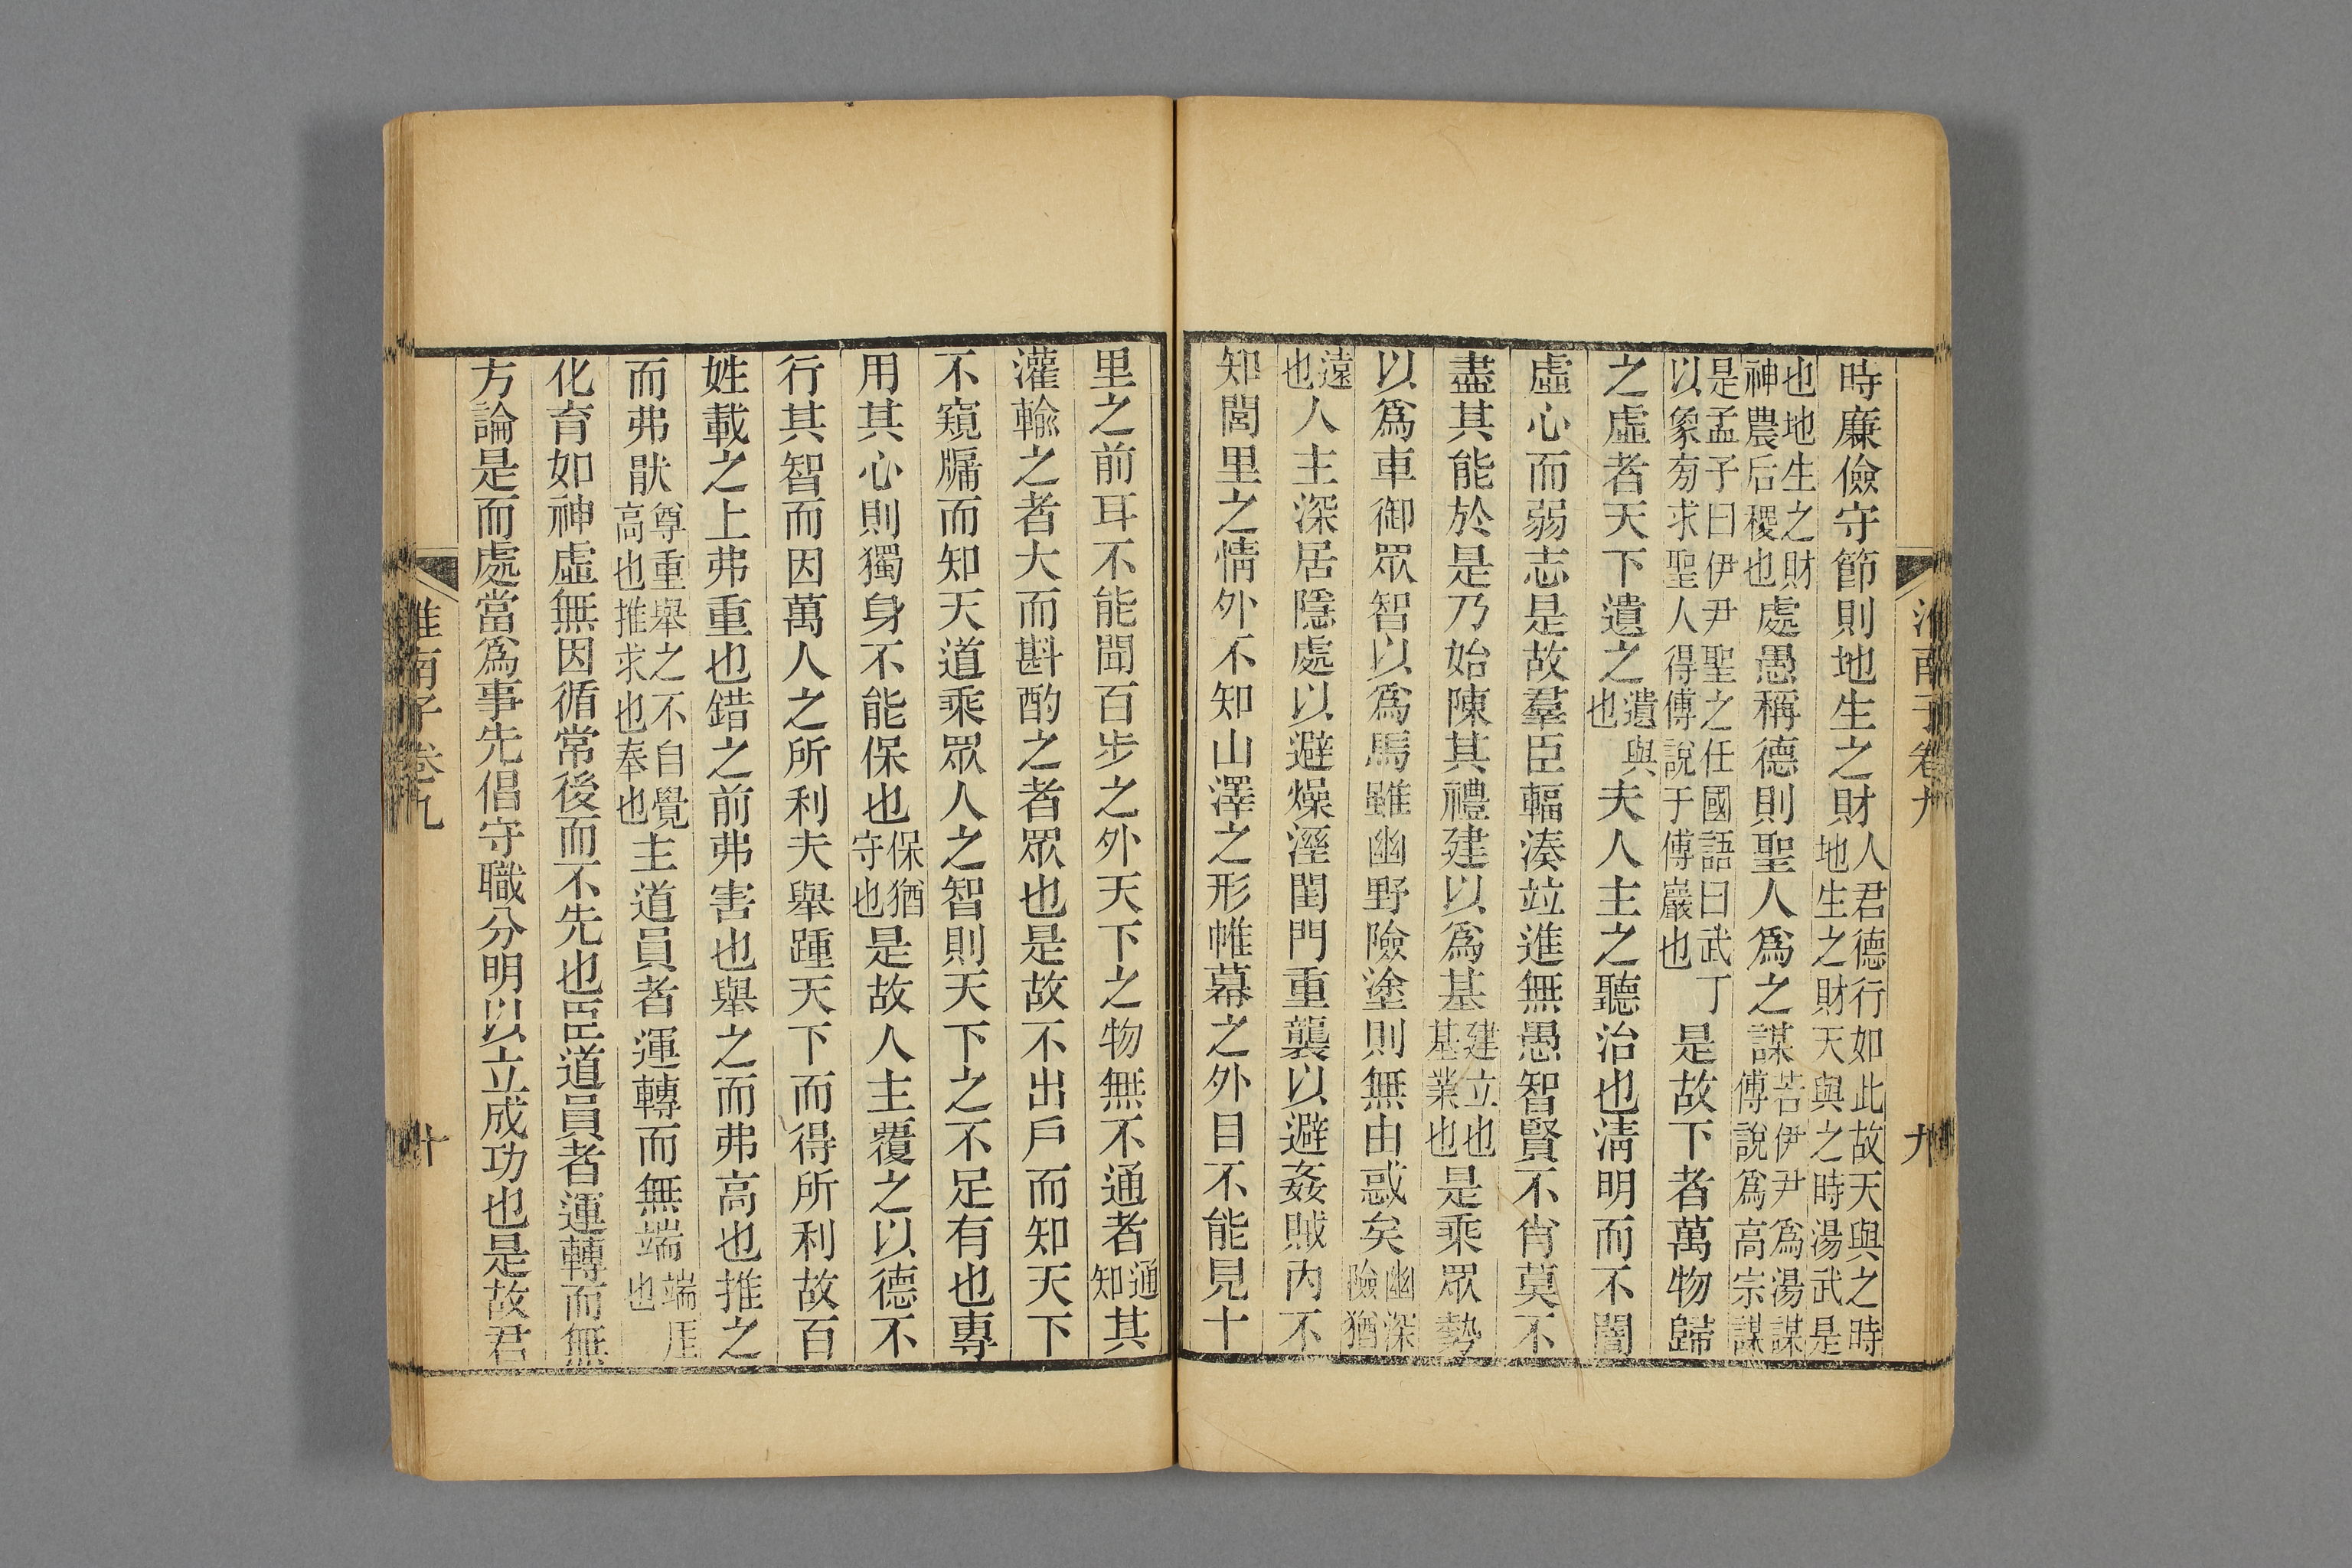 淮南子卷九 九
時廉儉守節則地生之財人君德行如此故天與之時地生之財天與之時湯武是
也地生之財神農后稷也處愚稱德則聖人爲之謀若伊尹爲湯謀傅說爲高宗謀
是孟子曰伊尹聖之任國語曰武丁以象旁求聖人得傅說于傅巖也是故下者萬物歸
之虛者天下遺之遺與也夫人主之聽治也淸明而不闇
虛心而弱志是故羣臣輻湊竝進無愚智賢不肖莫不
盡其能於是乃始陳其禮建以爲基建立也基業也是乘眾勢
以爲車御眾智以爲馬雖幽野險塗則無由惑矣幽深險猶
遠也人主深居隱處以避燥溼閨門重襲以避姦賊內不
知閭里之情外不知山澤之形帷幕之外目不能見十
里之前耳不能聞百步之外天下之物無不通者通知其
灌輸之者大而斟酌之者眾也是故不出戶而知天下
不窺牖而知天道乘眾人之智則天下之不足有也專
用其心則獨身不能保也保猶守也是故人主覆之以德不
行其智而因萬人之所利夫舉踵天下而得所利故百
姓載之上弗重也錯之前弗害也舉之而弗高也推之
而弗猒尊重舉之不自覺高也推求也奉也主道員者運轉而無端端厓也
化育如神虛無因循常後而不先也臣道員者運轉而無
方論是而處當爲事先倡守職分明以立成功也是故君
淮南子卷九 十